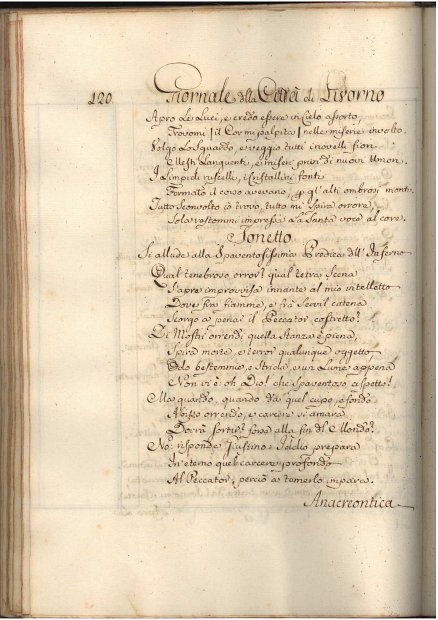 120 Giornale della Città di Livorno
Apro le Luci, e credo essere in Cielo assorto,
Trovomi | il Cor mi palpita | nelle miserie involto.
Volgo lo Sguardo, e veggio tutti i novelli fiori
Mesti Languenti, e miseri privi di nuovi Umori.
I Limpidi ruscelli, i Cristallini fonti
Fermato il corso avevano, gl'alti ombrosi monti.
Tutto Sconvolto io trovo, tutto mi Spira orrore,
Sola restommi impressa La Santa voce al core.
Sonetto
Si allude alla Spaventosissima Predica dell' Inferno
Qual tenebroso orror! qual tetra Scena
S'apre improvvisa innante al mio intelletto
Dove fra fiamme, e frà Servil catena
Scorgo a penar il Peccator costretto!
Di Mostri orrendi quella Stanza è piena,
Spira morte, e terror qualunque oggetto
Odo bestemmie, e Strida, e un Lume appena
Non vi è: oh Dio! che Spaventoso aspetto!
Ma quando, quando da quel cupo, e fondo
Abisso orrendo, e carcere sì amara
Dovrà Sortir? forse alla fin del Mondo?
No: risponde Iddio prepara
In eterno quel carcere profondo
Al Peccator, perciò a temerlo impara.
Anacreontica